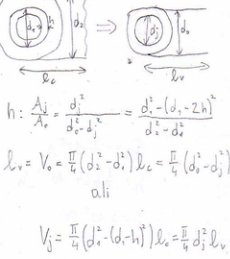 d₁ h d₂ ⇒ h dⱼ d₀
l_c l_v
h: Aⱼ/A₀ = dⱼ²/(d₀²-dⱼ²) = (d₁²-(d₁-2h)²)/(d₂²-d₁²)
l_v = V₀ = π/4 (d₂²-d₁²) l_c = π/4 (d₀²-dⱼ²)
ali
Vⱼ = π/4 (d₁²-(d₁-h)²) l_c = π/4 dⱼ² l_v